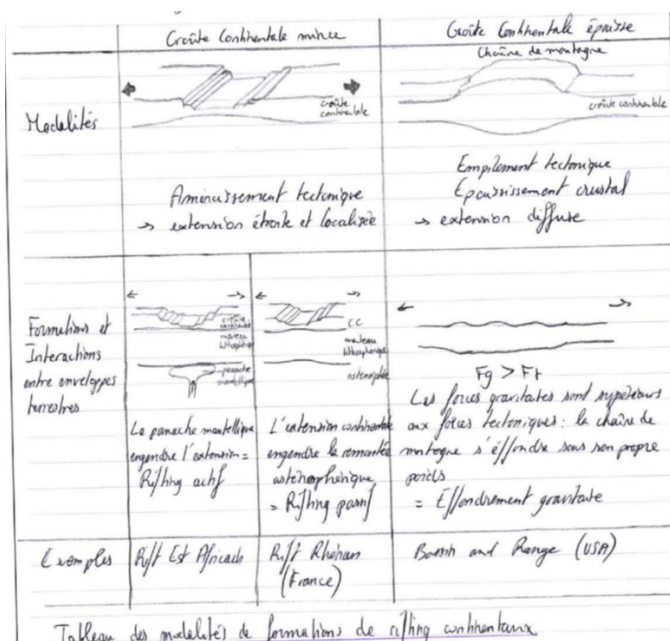 Croûte Continentale mince
Croûte Continentale épaisse
Modalités
croûte
continentale
Chaîne de montagne
croûte continentale
Amincissement tectonique
→ extension étroite et localisée
Empilement tectonique
Épaississement crustal
→ extension diffuse
Formations et
Interactions
entre enveloppes
terrestres
croûte
continentale
manteau
lithosphérique
panache
mantellique
Le panache mantellique
engendre l'extension =
Rifting actif
CC
manteau
lithosphérique
asthénosphère
L'extension continentale
engendre la remontée
asthénosphérique
= Rifting passif
Fg > Ft
Les forces gravitaires sont supérieures
aux forces tectoniques : la chaîne de
montagne s'éffondre sous son propre
poids
= Effondrement gravitaire
Exemples
Rift Est Africain
Rift Rhénan
(France)
Bassin and Range (USA)
Tableau des modalités de formations de rifting continentaux